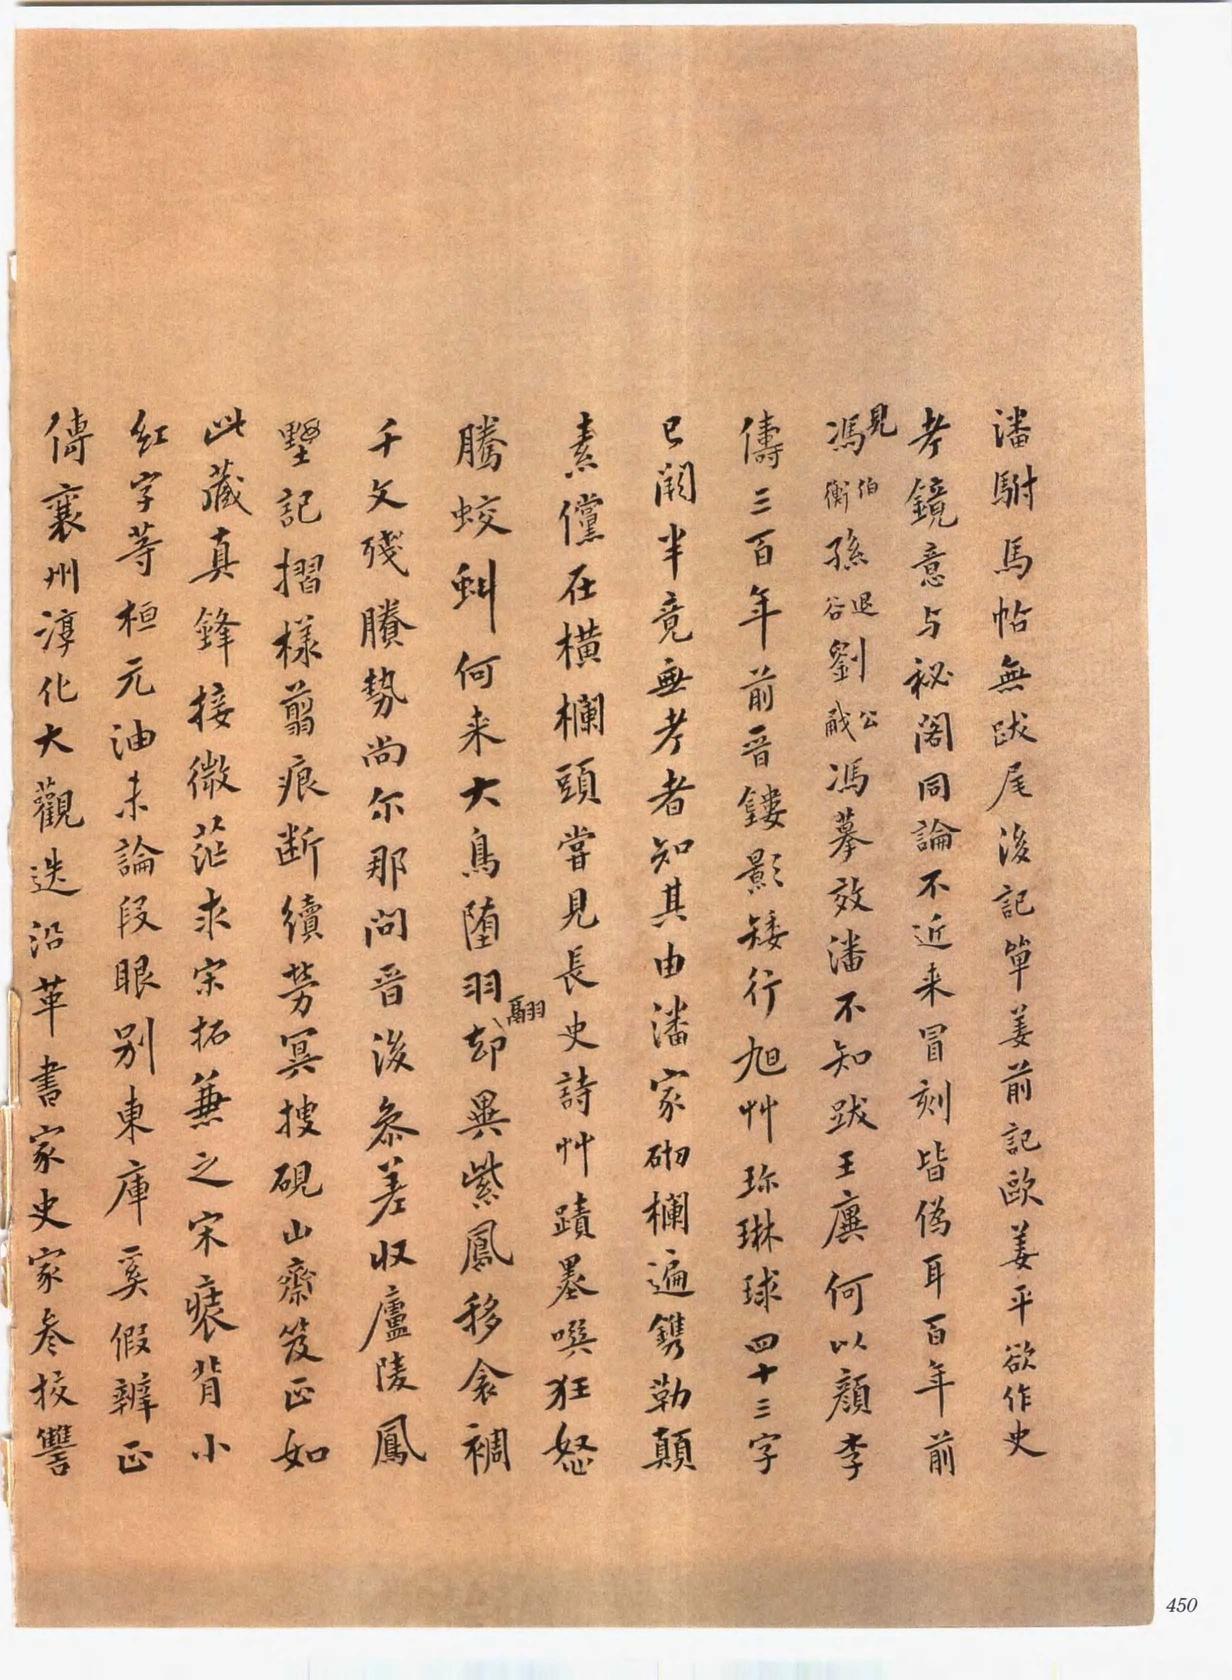 潘駙馬帖無跋尾後記單姜前記歐姜平欲作史
考鏡意与祕閣同論不近来冒刻皆偽耳百年前
見馮伯衡孫退谷劉公㦷馮摹效潘不知跋王廙何以顏李
儔三百年前晋鏤影矮行旭艸珎琳球四十三字
已闕半竟無考者知其由潘家砌欄遍鐫勒顛
素儻在横欄頭嘗見長史詩艸蹟墨噀狂怒
騰蛟虯何来大鳥堕羽翮却異紫鳳移衾裯
千文殘賸勢尚尔那問晋後叅差収廬陵鳳
墅記摺樣翦痕断續劳冥搜硯山齋笈正如
此藏真鋒接微茫求宋拓兼之宋裱背小
紅字等桓元油未論段眼别東庫奚假辨正
傳襄州淳化大觀迭沿革書家史家叁挍讐
450